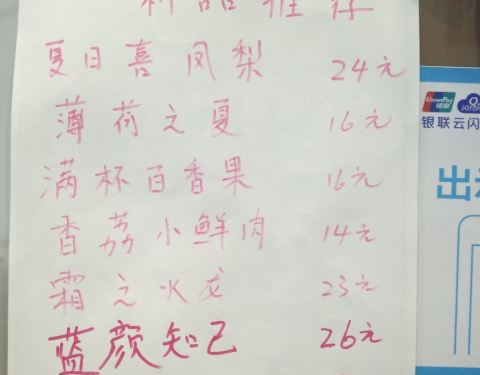 新品推荐
夏日喜凤梨 24元
薄荷之夏 16元
满杯百香果 16元
香荔小鲜肉 14元
霜之火龙 23元
蓝颜知己 26元
UnionPay
银联
银联云闪
出